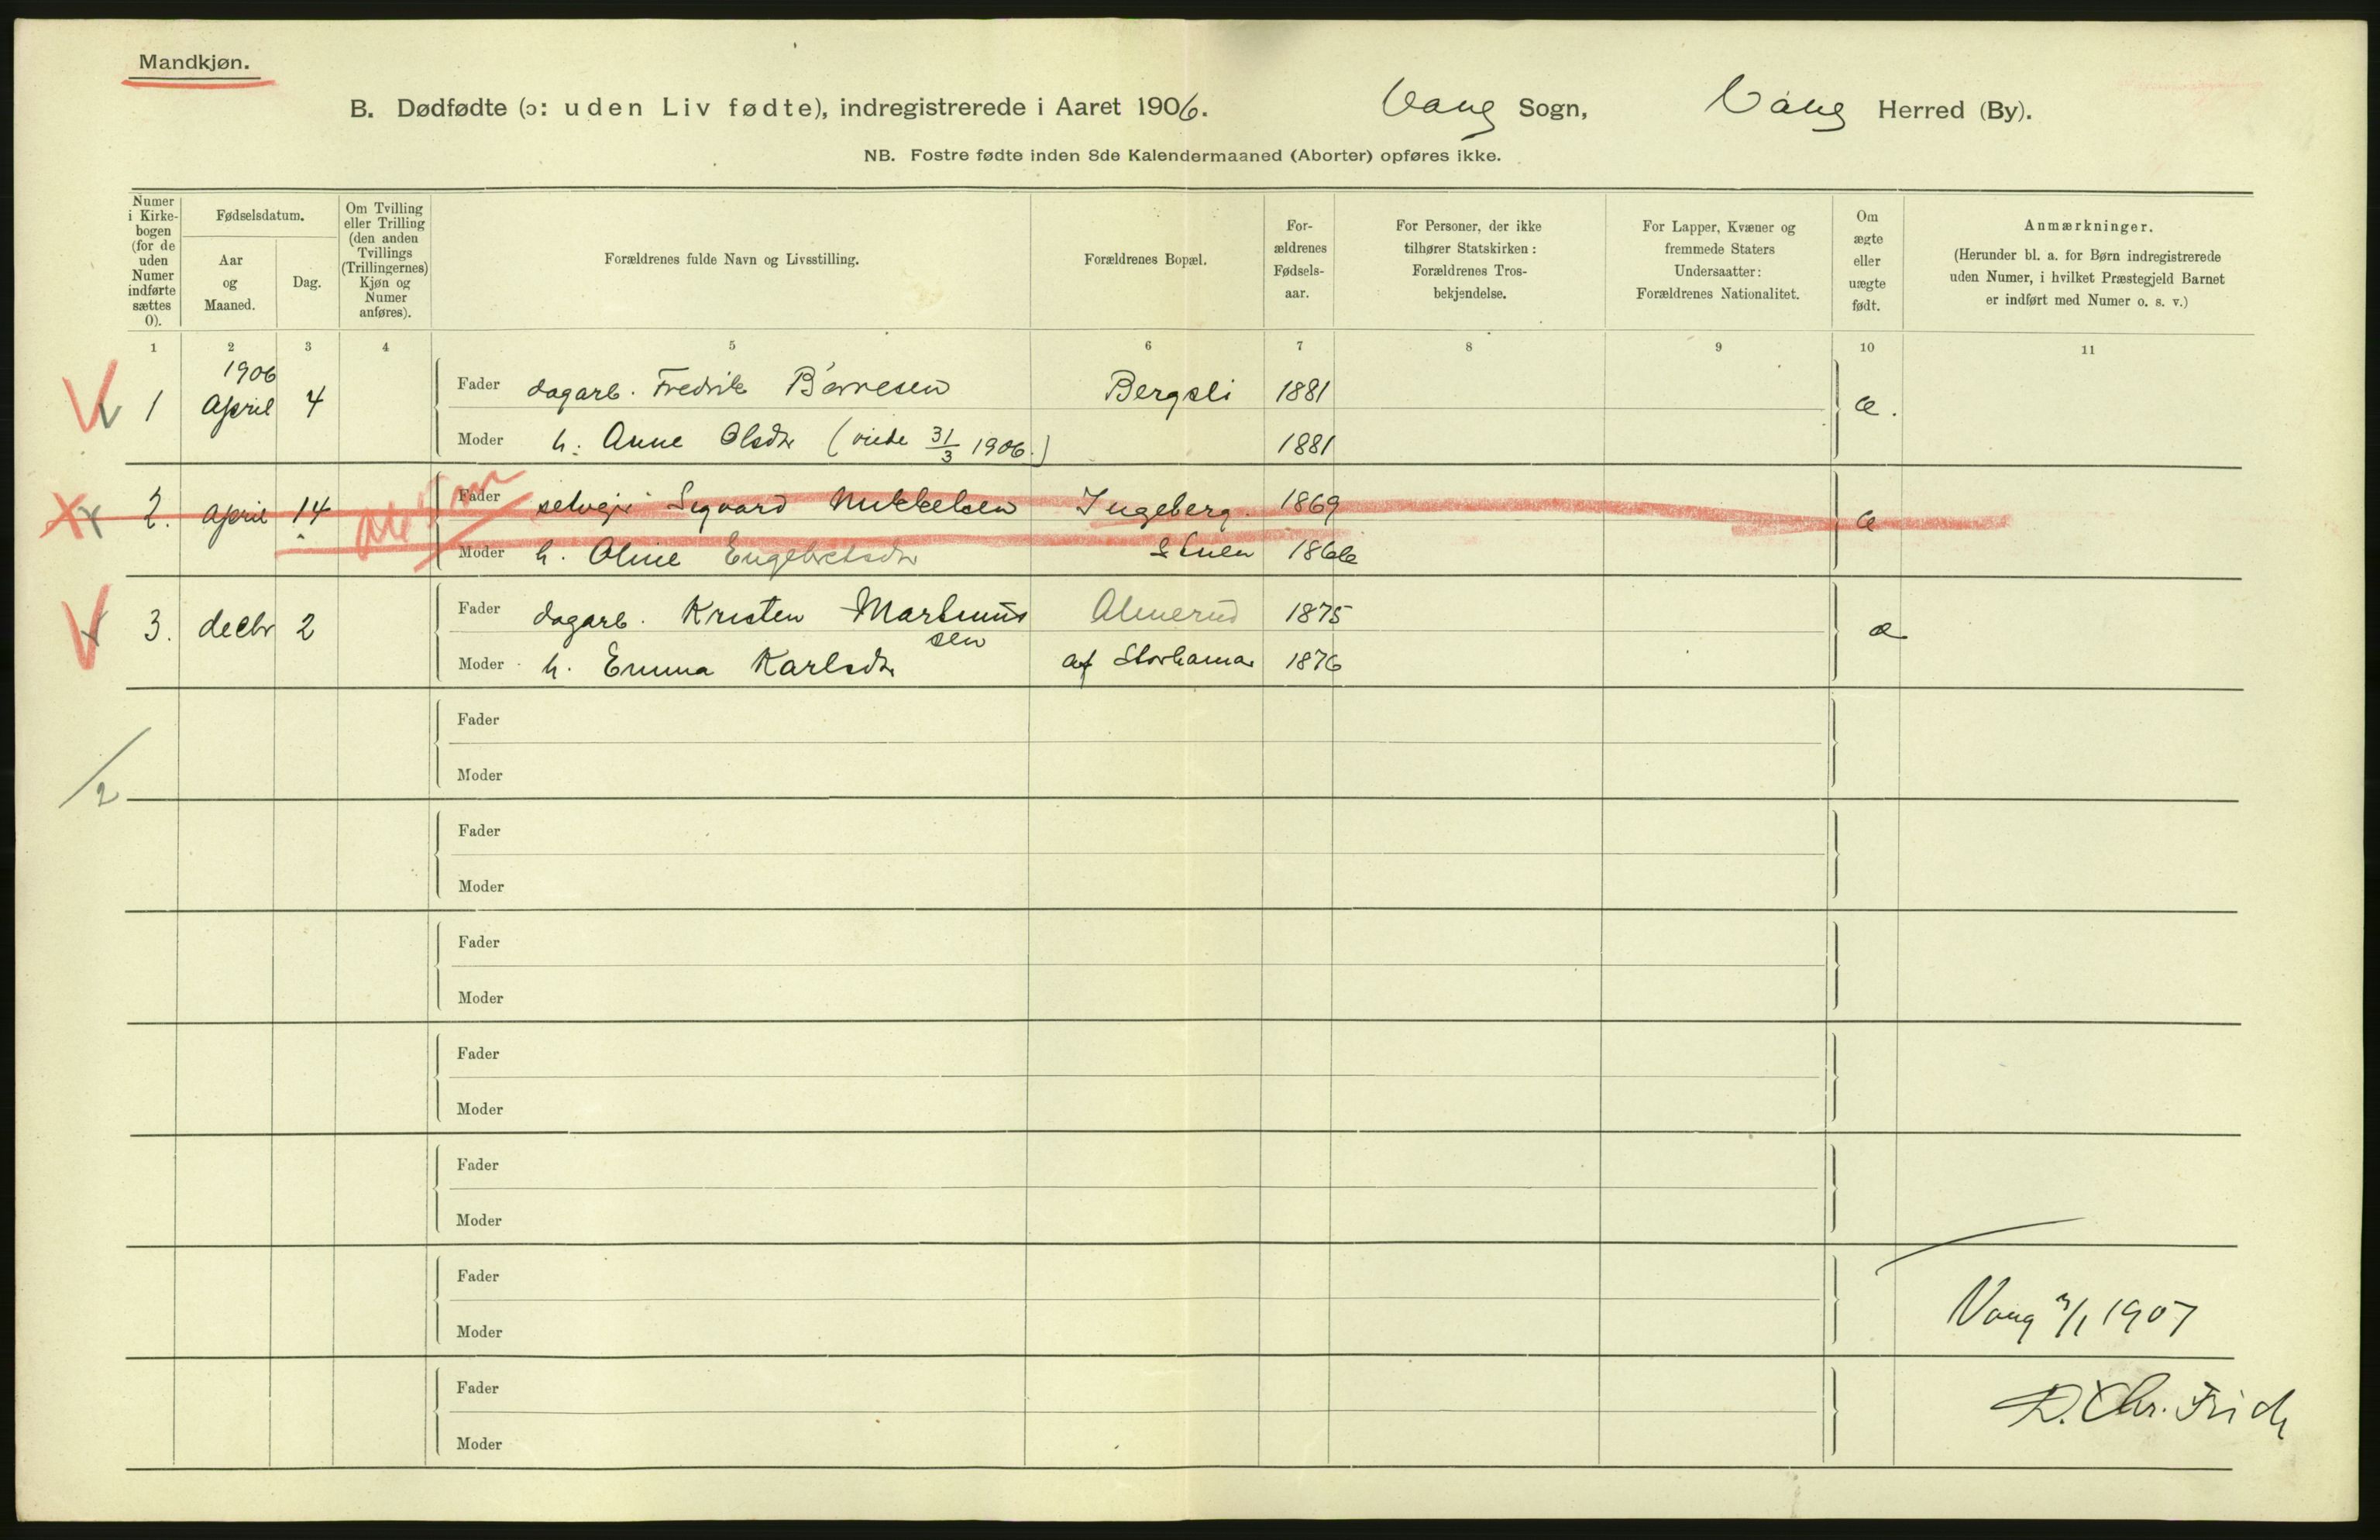 Mandkjøn.
B. Dødfødte (ɔ: uden Liv fødte), indregistrerede i Aaret 1906. Vang Sogn, Vang Herred (By).
NB. Fostre fødte inden 8de Kalendermaaned (Aborter) opføres ikke.
Numer i Kirkebogen (for de uden Numer indførte sættes 0).
Fødselsdatum.
Aar og Maaned.
Dag.
Om Tvilling eller Trilling (den anden Tvillings (Trillingernes) Kjøn og Numer anføres).
Forældrenes fulde Navn og Livsstilling.
Forældrenes Bopæl.
Forældrenes Fødselsaar.
For Personer, der ikke tilhører Statskirken: Forældrenes Trosbekjendelse.
For Lapper, Kvæner og fremmede Staters Undersaatter: Forældrenes Nationalitet.
Om ægte eller uægte født.
Anmærkninger.
(Herunder bl. a. for Børn indregistrerede uden Numer, i hvilket Præstegjeld Barnet er indført med Numer o. s. v.)
1 2 3 4 5 6 7 8 9 10 11
1906
1 April 4 Fader dagarb. Fredrik Bernesen Bergsli 1881 æ.
Moder h. Anne Olsdtr (viede 31/3 1906.) 1881
2. April 14 Fader selvejer Sigvard Mikkelsen Ingeberg 1869 æ
Moder h. Oline Engebretsdtr 1866
3. decbr 2 Fader dagarb. Kristen Martinussen Almerud 1875 æ
Moder h. Emma Karlsdtr af Storhamar 1876
Fader
Moder
2
Fader
Moder
Fader
Moder
Fader
Moder
Fader
Moder
Fader
Moder
Vang 3/1 1907
Fader
Moder
D. Chr. Frich